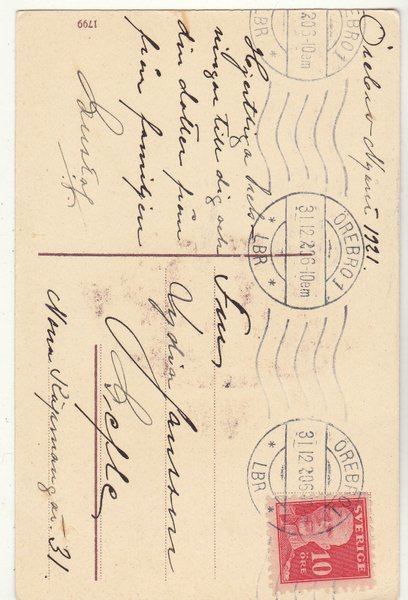 Örebro Nyård 1921.
Hjertliga hels-
ningar till dig och
din dotter från
från familjen
Gustaf
1799
Fru,
Sydia Janson
Gefle
Norra Köpmangat. 31.
ÖREBRO 1
31 12 20 6-10 em
* LBR *
ÖREBRO 1
31 12 20 6-10 em
* LBR *
ÖREBRO
31 12 20 6
LBR *
SVERIGE
10
ÖRE